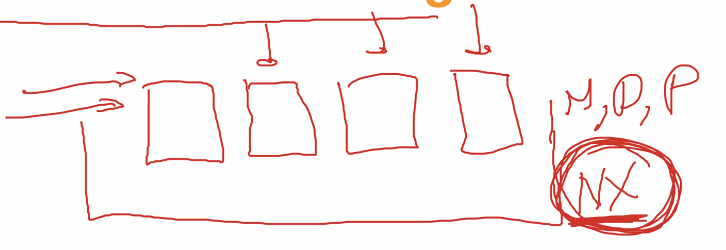 M, D, P
NX